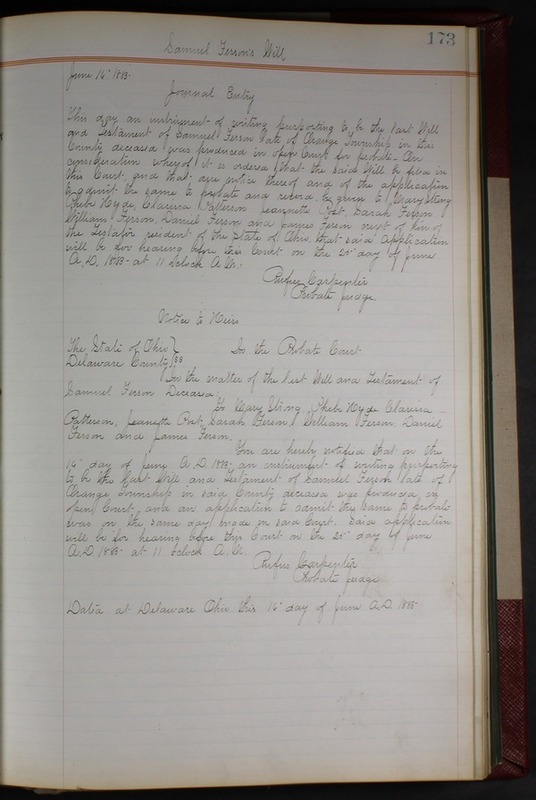 173
Samuel Ferson's Will
June 16" 1883-
Journal Entry
This day an instrument of writing purporting to be the Last Will
and Testament of Samuel Ferson late of Orange Township in this
County deceased was produced in open Court for probate. On
consideration whereof it is ordered that the said Will be filed in
this Court and that due notice thereof and of the application
to admit the same to probate and record be given to Mary Strong
Phebe Hyde, Clarissa Patterson Jeanette Post, Sarah Ferson
William Ferson, Daniel Ferson and James Ferson next of kin of
the Testator resident of the State of Ohio, that said application
will be for hearing before this Court on the 25" day of June
A.D. 1883- at 11 oclock A.M.
Rufus Carpenter
Probate judge.
Notice to Heirs
The State of Ohio }
Delaware County } SS In the Probate Court
In the matter of the Last Will and Testament of
Samuel Ferson Deceased
To Mary Strong, Phebe Hyde Clarissa
Patterson, Jeanette Post, Sarah Ferson, William Ferson, Daniel
Ferson and James Ferson.
You are hereby notified that on the
16" day of June A.D. 1883- an instrument of writing purporting
to be the Last Will and Testament of Samuel Ferson late of
Orange Township in said County deceased was produced in
open Court, and an application to admit the same to probate
was on the same day made in said Court. Said application
will be for hearing before this Court on the 25" day of June
A.D. 1883- at 11 oclock A.M.
Rufus Carpenter
Probate judge
Dated at Delaware Ohio this 16" day of June A.D. 1883-